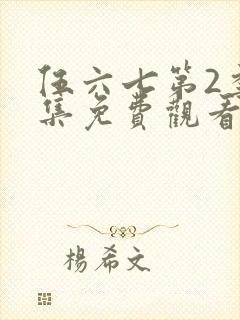 伍六七第2季
集免費觀看
楊希文